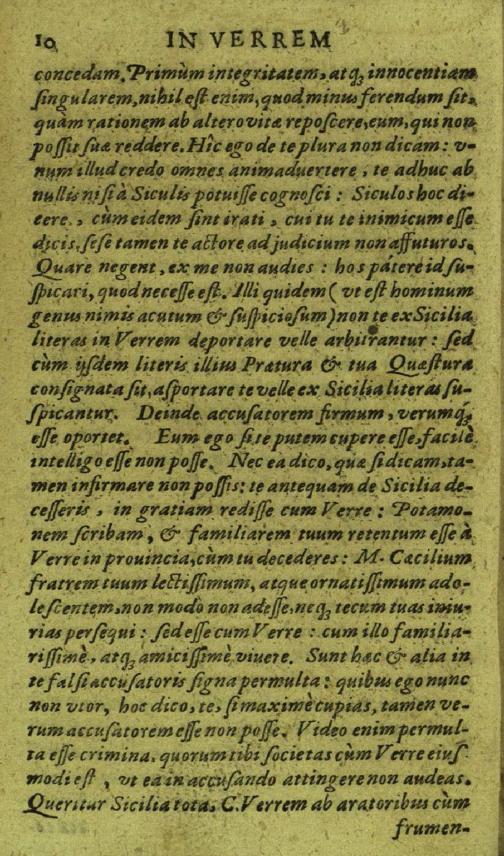 10 IN VERREM
concedam. Primùm integritatem, atq; innocentiam
singularem, nihil est enim, quod minus ferendum sit,
quàm rationem ab altero vitæ reposcere, eum, qui non
possit suæ reddere. Hic ego de te plura non dicam: v-
num illud credo omnes animaduertere, te adhuc ab
nullis nisi à Siculis potuisse cognosci: Siculos hoc di-
cere, cùm eidem sint irati, cui tu te inimicum esse
dicis, sese tamen te actore ad judicium non affuturos.
Quare negent, ex me non audies: hos pátere id su-
spicari, quod necesse est. Illi quidem (vt est hominum
genus nimis acutum & suspiciosum) non te ex Sicilia
literas in Verrem deportare velle arbitrantur: sed
cùm ijsdem literis illius Prætura & tua Quæstura
consignata sit, asportare te velle ex Sicilia literas su-
spicantur. Deinde accusatorem firmum, verumq;
esse oportet. Eum ego si te putem cupere esse, facilè
intelligo esse non posse. Nec ea dico, quæ si dicam, ta-
men infirmare non possis: te antequam de Sicilia de-
cesseris, in gratiam redisse cum Verre: Potamo-
nem scribam, & familiarem tuum retentum esse à
Verre in prouincia, cùm tu decederes: M. Cæcilium
fratrem tuum lectissimum, atque ornatissimum ado-
lescentem, non modò non adesse, neq; tecum tuas iniu-
rias persequi: sed esse cum Verre: cum illo familia-
rissimè, atq; amicissimè viuere. Sunt hæc & alia in
te falsi accusatoris signa permulta: quibus ego nunc
non vtor, hoc dico, te, si maximè cupias, tamen ve-
rum accusatorem esse non posse. Video enim permul-
ta esse crimina, quorum tibi societas cùm Verre eius
modi est, vt ea in accusando attingere non audeas.
Queritur Sicilia tota, C. Verrem ab aratoribus cùm
frumen-